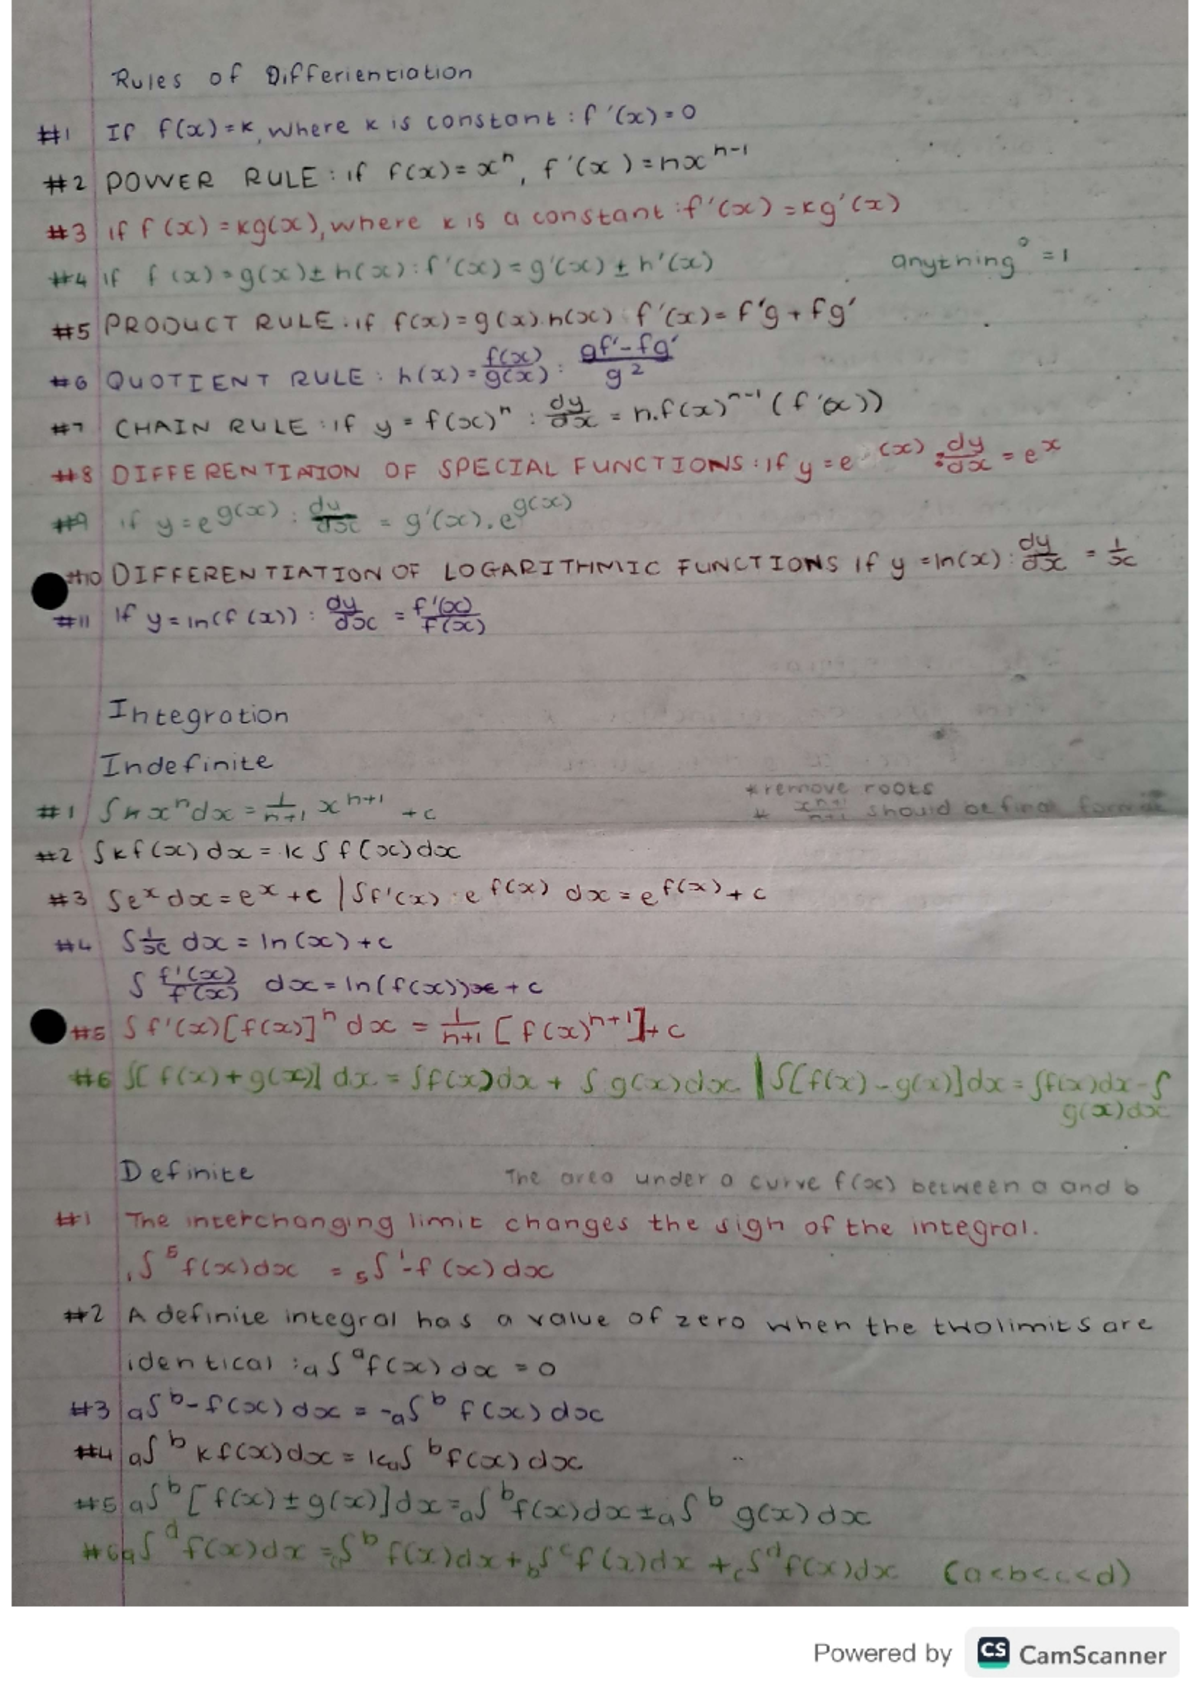 Rules of Differienciation
#1 If f(x)=k, where k is constant : f'(x)=0
#2 POWER RULE : if f(x)=xⁿ, f'(x)=nxⁿ⁻¹
#3 if f(x)=kg(x), where k is a constant : f'(x)=kg'(x)
#4 if f(x)=g(x)±h(x) : f'(x)=g'(x)±h'(x) anything⁰=1
#5 PRODUCT RULE : if f(x)=g(x).h(x) f'(x)=f'g+fg'
#6 QUOTIENT RULE : h(x)=f(x)/g(x) : gf'-fg'/g²
#7 CHAIN RULE : if y=f(x)ⁿ : dy/dx = n.f(x)ⁿ⁻¹(f'(x))
#8 DIFFERENTIATION OF SPECIAL FUNCTIONS : if y=e^(x) : dy/dx = e^x
#9 if y=e^g(x) : dy/dx = g'(x).e^g(x)
#10 DIFFERENTIATION OF LOGARITHMIC FUNCTIONS If y=ln(x) : dy/dx = 1/x
#11 If y=ln(f(x)) : dy/dx = f'(x)/f(x)
Integration
Indefinite
*remove roots
#1 ∫xⁿdx = 1/n+1 xⁿ⁺¹ +c * xⁿ⁺¹/n+1 should be final format
#2 ∫kf(x)dx = k∫f(x)dx
#3 ∫e^x dx = e^x +c | ∫f'(x).e^f(x) dx = e^f(x) +c
#4 ∫1/x dx = ln(x)+c
∫f'(x)/f(x) dx = ln(f(x))+c
#5 ∫f'(x)[f(x)]ⁿdx = 1/n+1 [f(x)ⁿ⁺¹]+c
#6 ∫[f(x)+g(x)]dx = ∫f(x)dx + ∫g(x)dx | ∫[f(x)-g(x)]dx = ∫f(x)dx-∫
g(x)dx
Definite The area under a curve f(x) between a and b
#1 The interchanging limit changes the sign of the integral.
₁∫⁵f(x)dx = ₅∫¹-f(x)dx
#2 A definite integral has a value of zero when the two limits are
identical : a∫ᵃf(x)dx = 0
#3 a∫ᵇ-f(x)dx = -a∫ᵇf(x)dx
#4 a∫ᵇkf(x)dx = ka∫ᵇf(x)dx
#5 a∫ᵇ[f(x)±g(x)]dx = a∫ᵇf(x)dx ± a∫ᵇg(x)dx
#6 a∫ᵈf(x)dx = a∫ᵇf(x)dx + b∫ᶜf(x)dx + c∫ᵈf(x)dx (a<b<c<d)
Powered by CS CamScanner